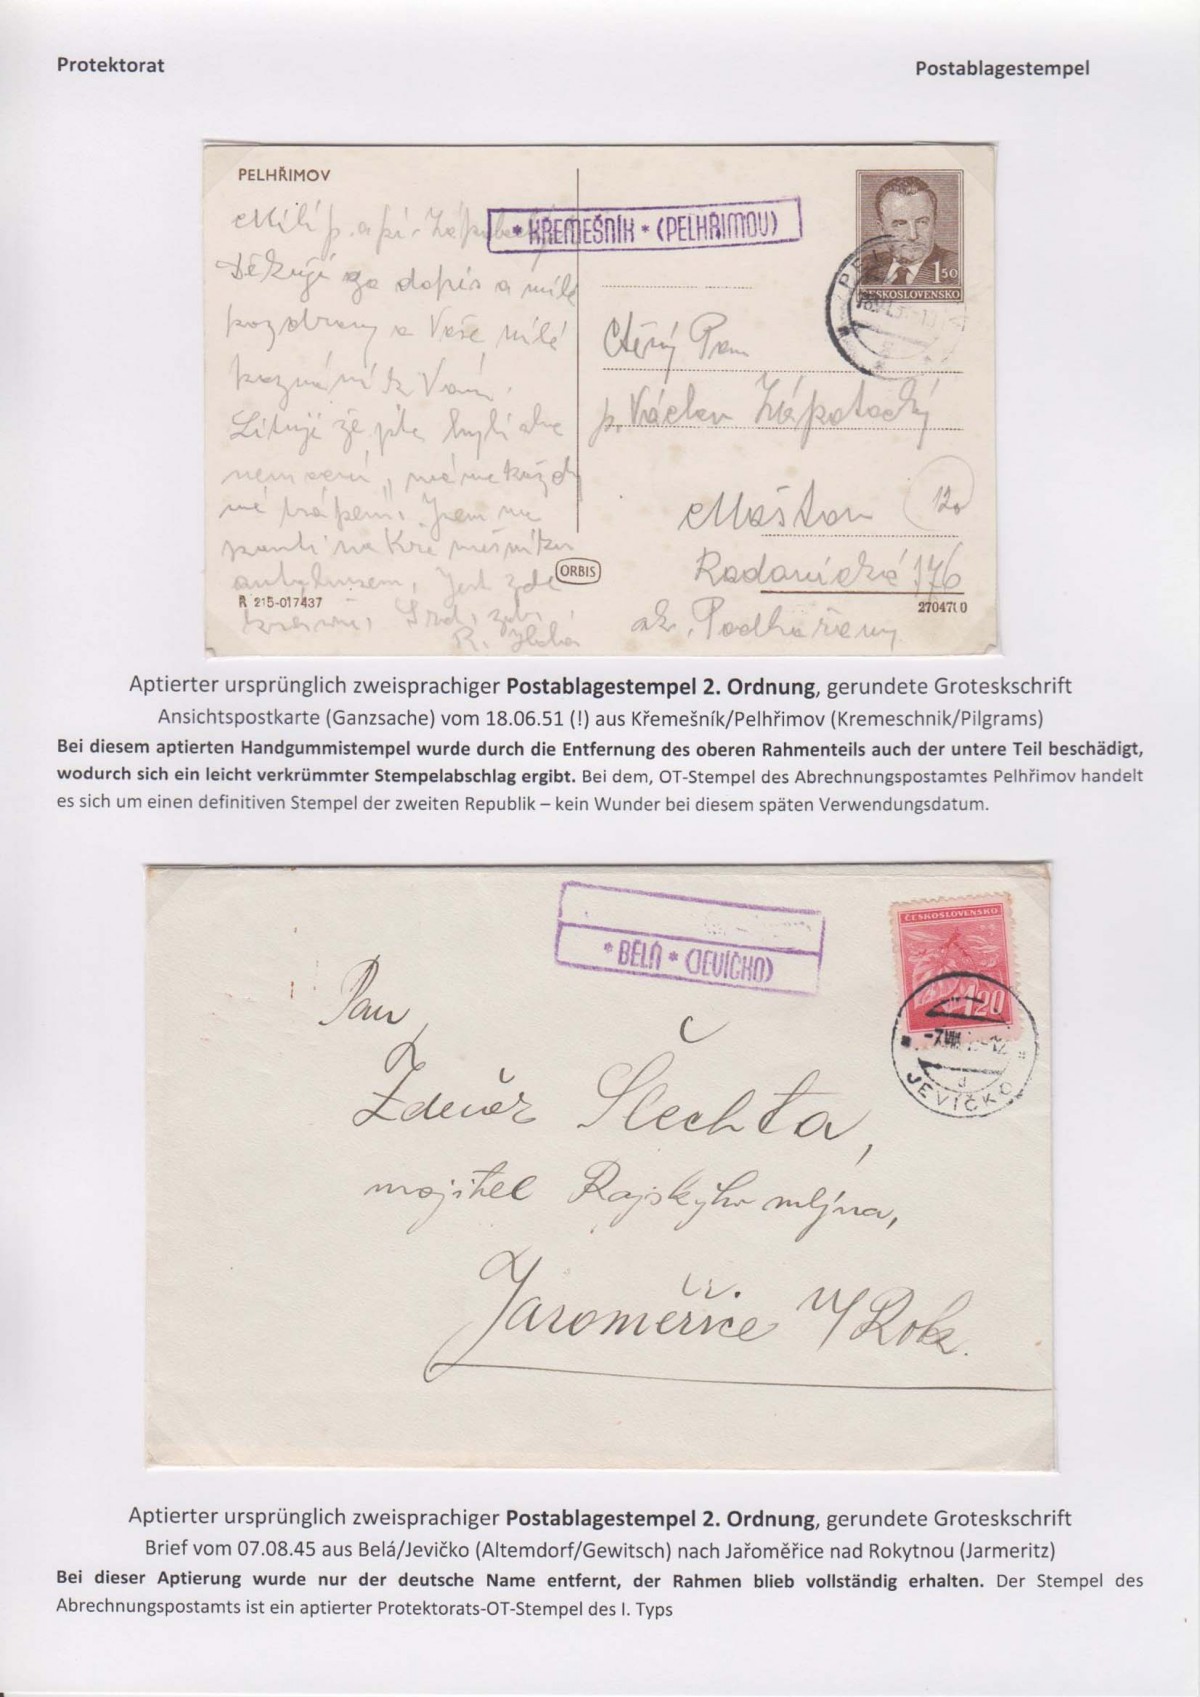 Protektorat
Postablagestempel
PELHŘIMOV
* KŘEMEŠNÍK * (PELHŘIMOV)
1 50
ČESKOSLOVENSKO
Milí p. a pí.
Děkuji za dopis a milé
pozdravy a Vaše milé
Lituji že jste byli
nemocní,
autobusem, jest zde
krásně, Srd.
R.
Ctěný Pan
p. Václav Zápotocký
Mašťov
Radonická 176
ok. Podbořany
12a
ORBIS
R 215-017437
270471 0
Aptierter ursprünglich zweisprachiger Postablagestempel 2. Ordnung, gerundete Groteskschrift
Ansichtspostkarte (Ganzsache) vom 18.06.51 (!) aus Křemešník/Pelhřimov (Kremeschnik/Pilgrams)
Bei diesem aptierten Handgummistempel wurde durch die Entfernung des oberen Rahmenteils auch der untere Teil beschädigt,
wodurch sich ein leicht verkrümmter Stempelabschlag ergibt. Bei dem, OT-Stempel des Abrechnungspostamtes Pelhřimov handelt
es sich um einen definitiven Stempel der zweiten Republik – kein Wunder bei diesem späten Verwendungsdatum.
* BĚLÁ * (JEVÍČKO)
ČESKOSLOVENSKO
1'20
JEVÍČKO
Pan
Zdeněk Šlechta,
majitel Rajského mlýna,
Jaroměřice n/Rok.
Aptierter ursprünglich zweisprachiger Postablagestempel 2. Ordnung, gerundete Groteskschrift
Brief vom 07.08.45 aus Belá/Jevičko (Altemdorf/Gewitsch) nach Jařoměřice nad Rokytnou (Jarmeritz)
Bei dieser Aptierung wurde nur der deutsche Name entfernt, der Rahmen blieb vollständig erhalten. Der Stempel des
Abrechnungspostamts ist ein aptierter Protektorats-OT-Stempel des I. Typs